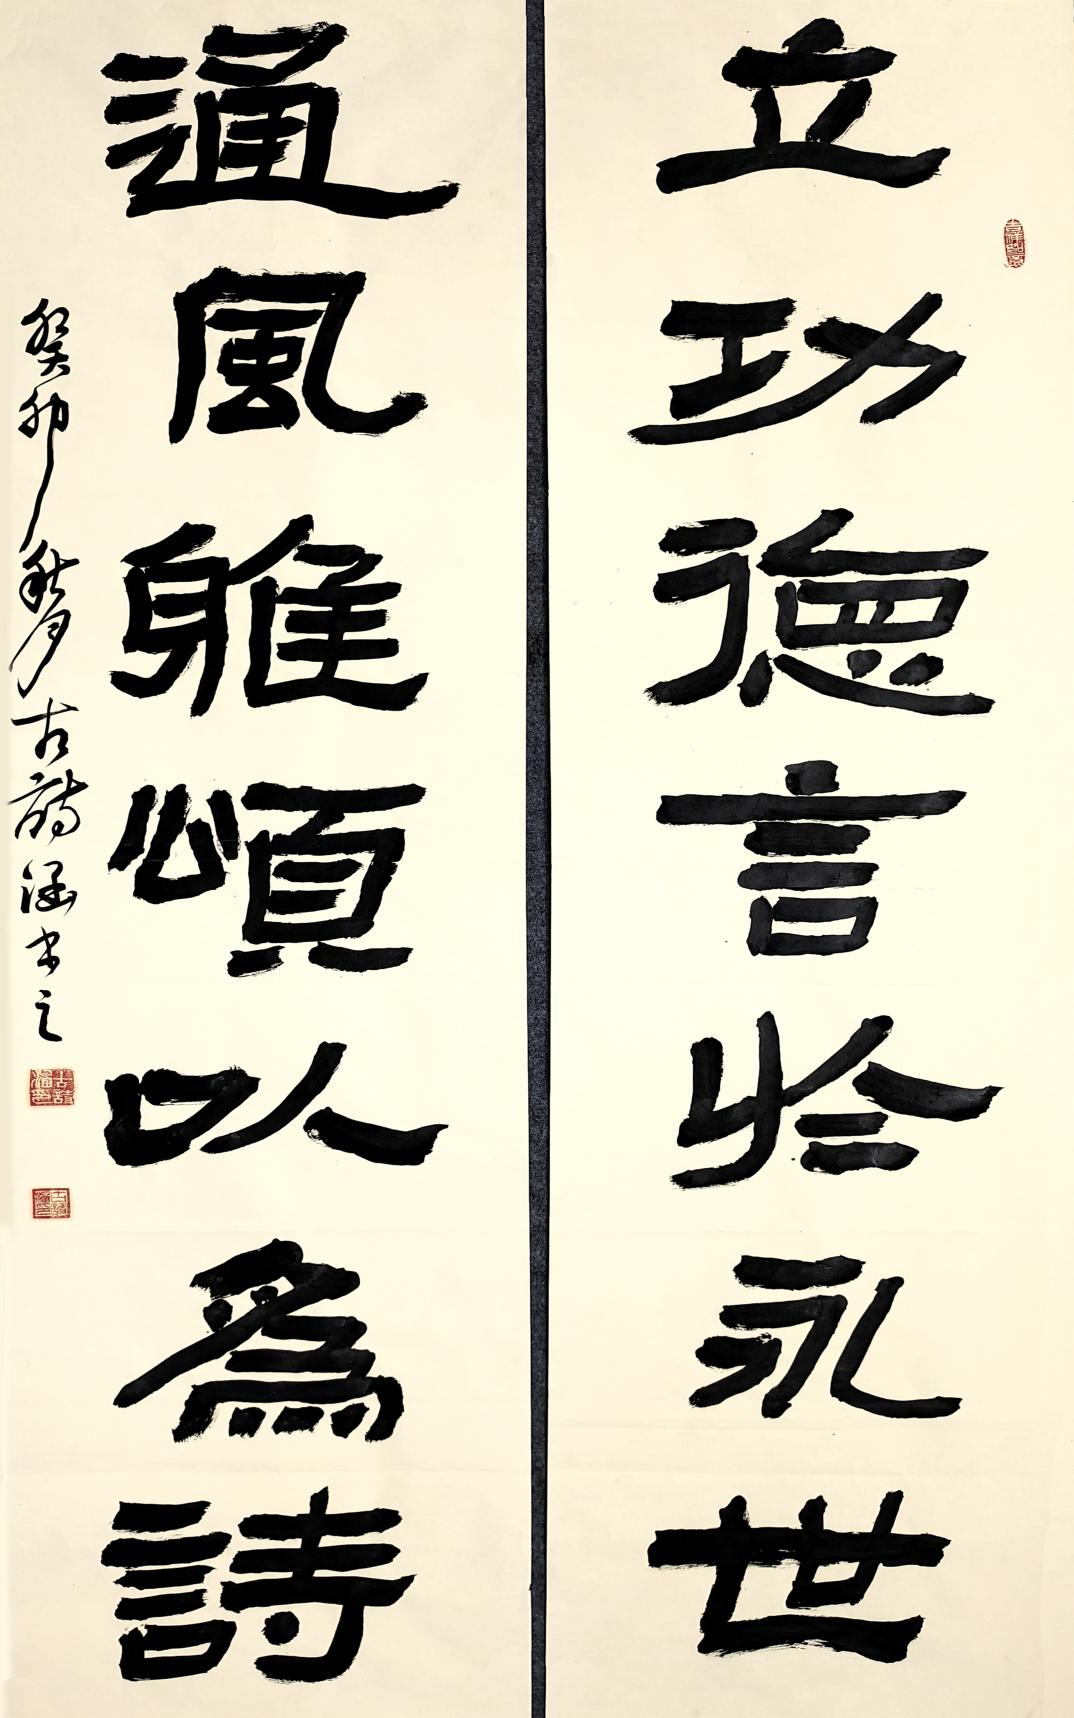 立功德言於永世
通風雅頌以為詩
癸卯秋月古詩涵书之